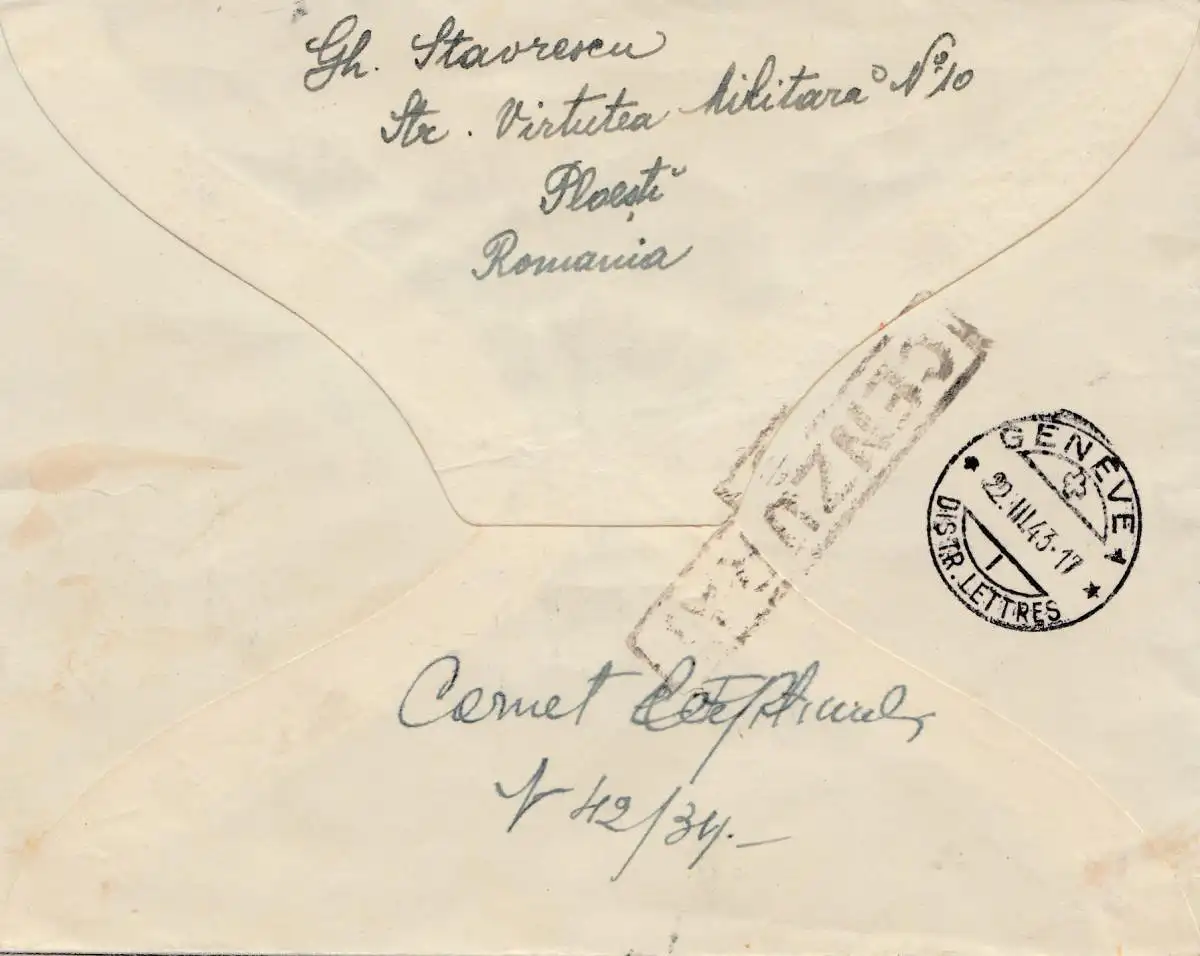 Gh. Stavrescu
Str. Virtutea Militara No. 10
Ploești
Romania
CENZURAT
GENÈVE
22.III.43-17
1
DISTR. LETTRES
Carnet
N 42/34.—